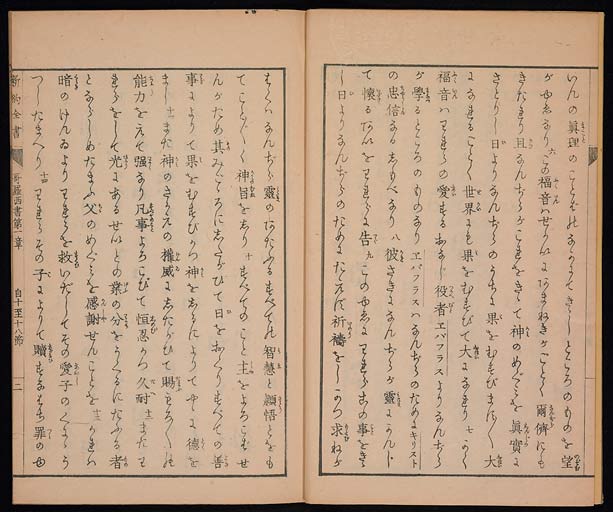 いんの眞理のことばにおいてきゝしところのものを望
がゆゑなり六この福音はせかいにあまねきがごとく爾儕にも
きたれり且なんぢらがこれをきゝて神のめぐみを眞實に
さとりし日よりなんぢらのうちに果をむすびます〱大
になれることく世界にも果をむすびて大になれり七かく
福音はわれらの愛するおなじ役者エパフラスよりなんぢら
が學るところのものなりエパフラスはなんぢらのためにキリスト
の忠信なるしもべなり八彼さきになんぢらが靈にかんじ
て懷る愛をわれらに告九このゆゑにわれらこの事をきゝ
し日よりなんぢらのためにたえず祈禱をしかつ求ねが
はくはなんぢら靈のあたふるすべての智慧と頴悟とをも
てこと〲く神旨をしり十すべてのこと主をよろこばせ
んがため其みこころにしたがひて日をおくりすべての善
事によりて果をむすびかつ神をしるによりて德を
まし十一また神のさかえの權威にしたがひて賜もろ〱の
能力をえて强なり凡事よろこびて恒忍かつ久耐十二またわ
れらをして光にあるせいとの業の分をうくるにたふる者
とならしめたまふ父のめぐみを感謝せんことを十三かれわれらを
暗のけんゐよりわれらを救いだしてその愛子のくにゝう
つしたまへり十四われらその子によりて贖すなはち罪のゆ
新約全書
哥羅西書第一章
自十至十八節
二